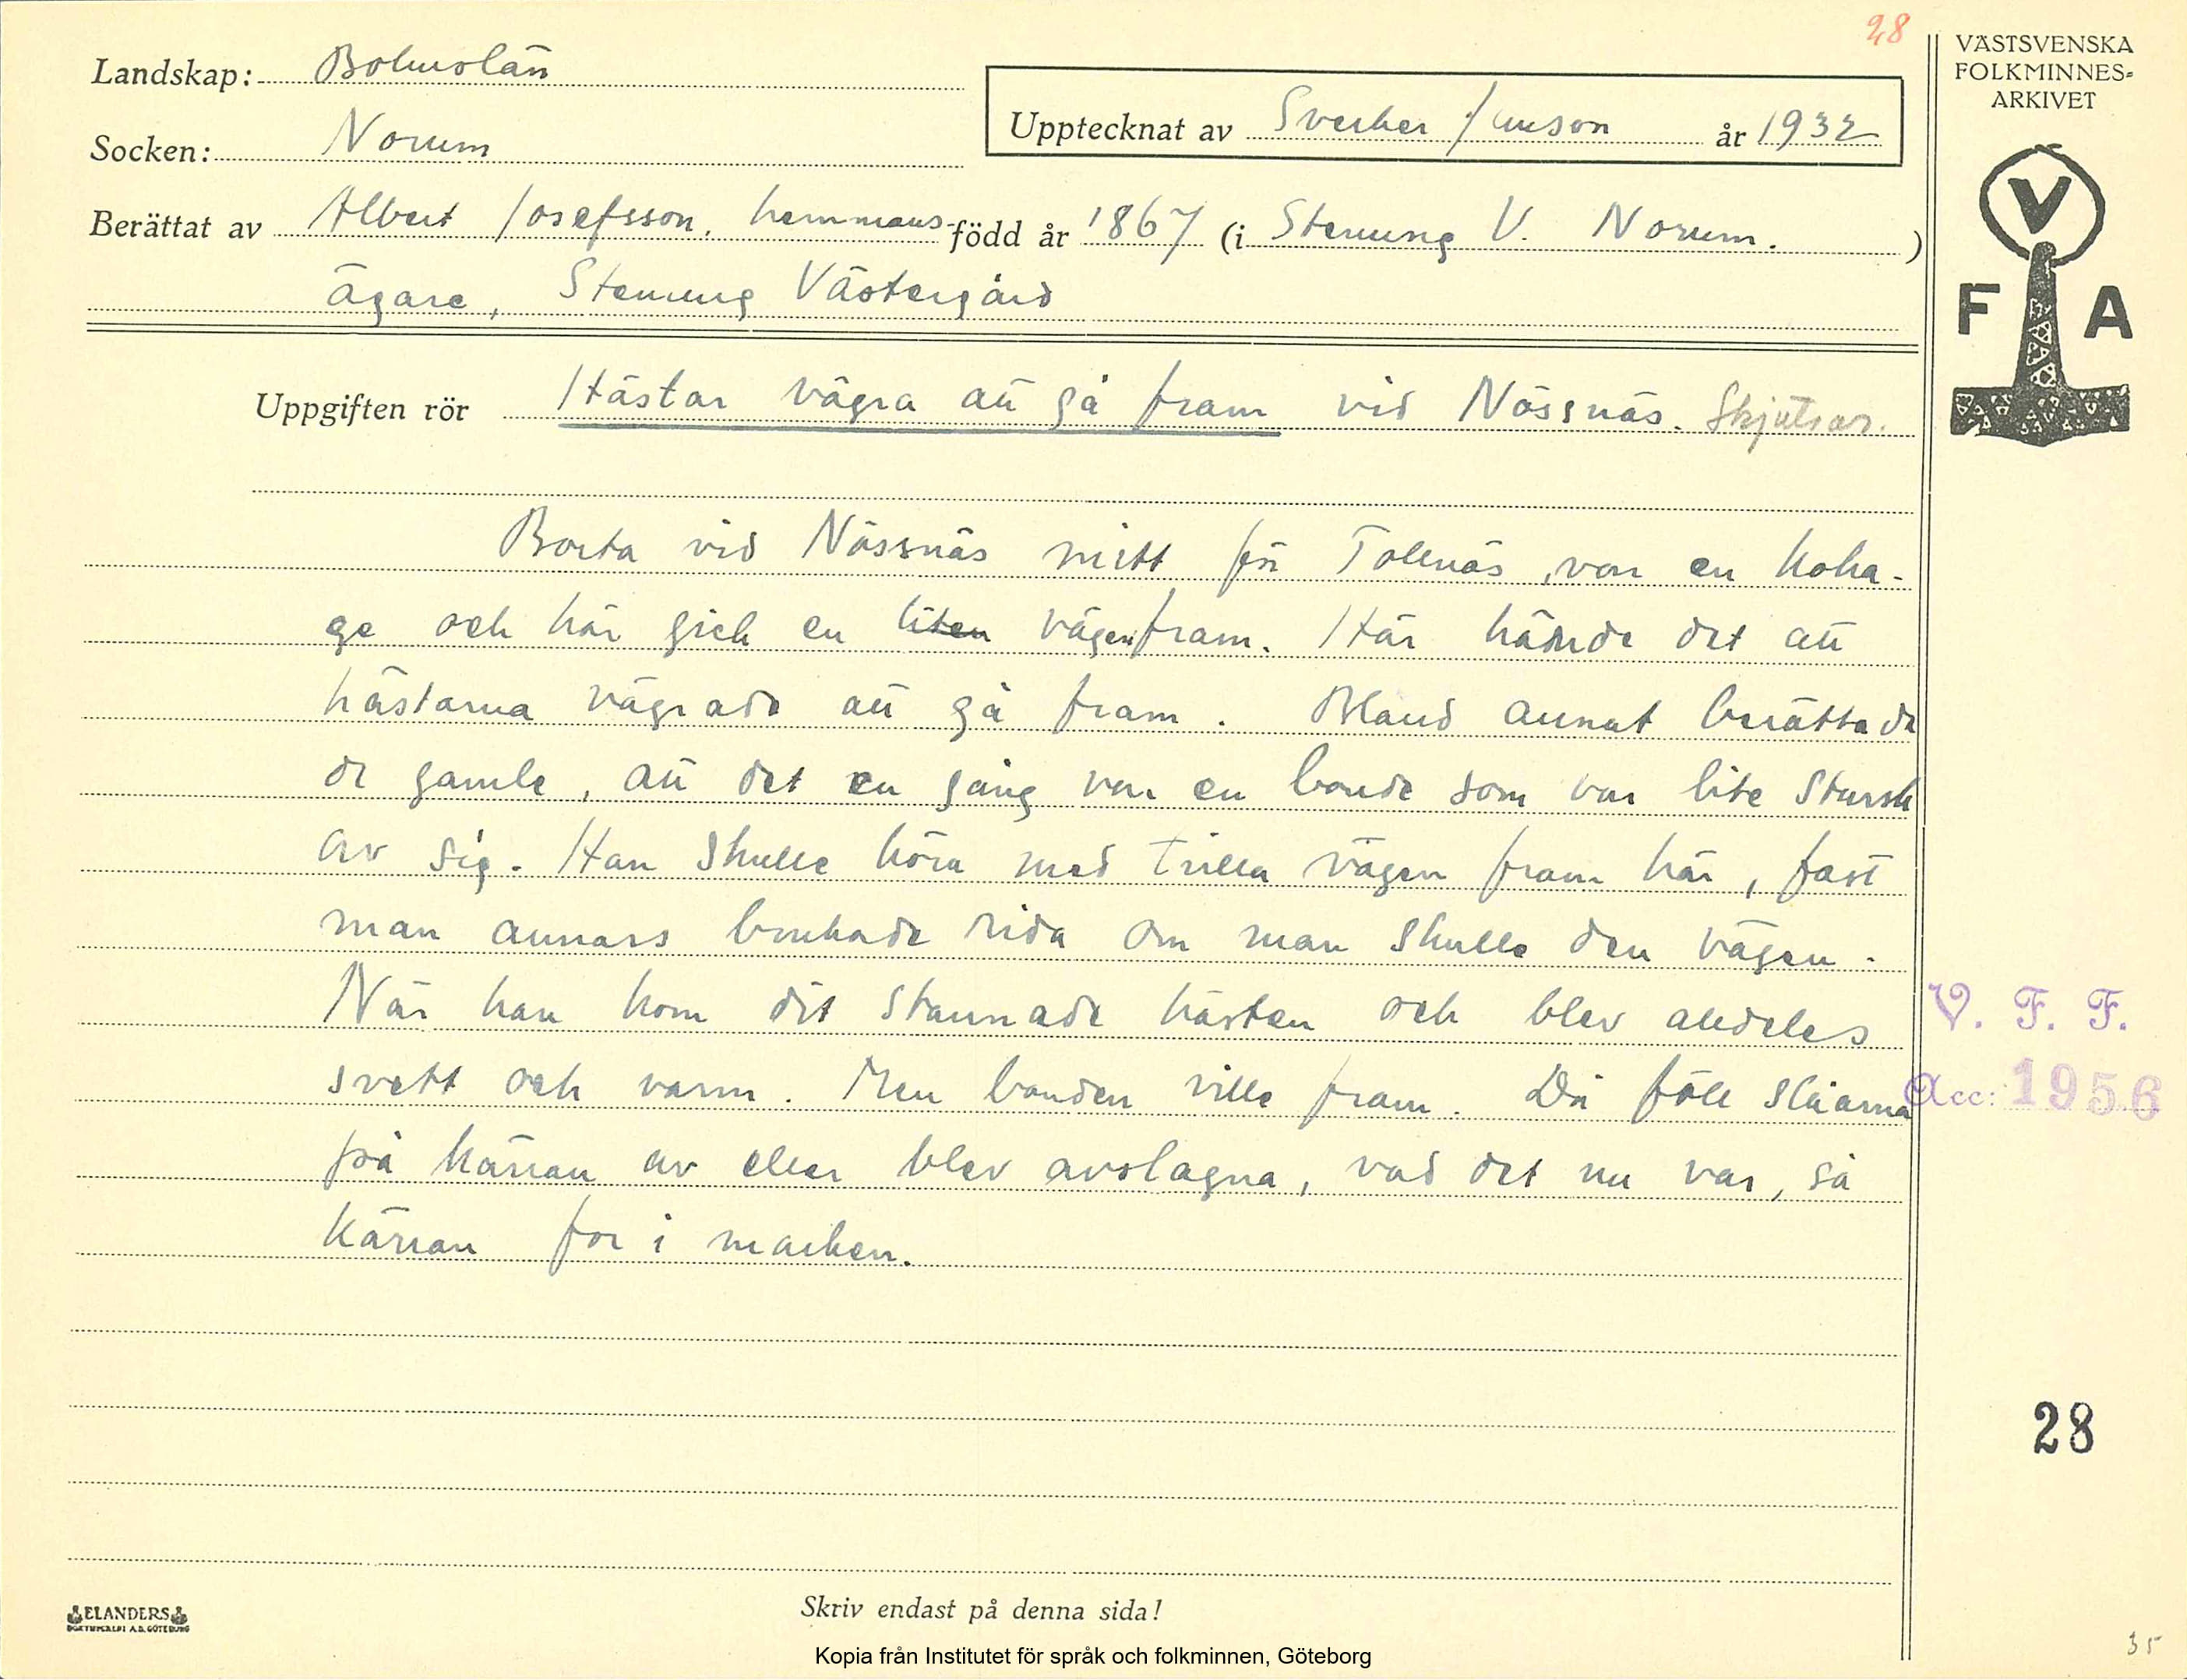 28
VÄSTSVENSKA
FOLKMINNES=
ARKIVET
Landskap: Bohuslän
Upptecknat av Sverker Janson år 1932
Socken: Norum
Berättat av Albert Josefsson, hemmans- född år 1867 (i Stenung V. Norum. )
ägare, Stenung Västergård
V
F A
Uppgiften rör Hästar vägra att gå fram vid Nössnäs. Skjutsar.
Borta vid Nössnäs mitt för Tollenäs, var en koha-
ge och här gick en liten vägen fram. Här hände det att
hästarna vägrade att gå fram. Bland annat berättade
de gamle, att det en gång var en bonde som var lite stursk
av sig. Han skulle köra med trilla vägen fram här, fast
man annars brukade rida om man skulle den vägen.
När han kom dit stannade hästen och blev alldeles
svett och varm. Men bonden ville fram. Då föll skäarna
på kärran av eller blev avslagna, vad det nu var, så
kärran for i marken.
V. F. F.
Acc: 1956
28
ELANDERS
BOKTRYCKERI A.B. GÖTEBORG
Skriv endast på denna sida!
Kopia från Institutet för språk och folkminnen, Göteborg
35